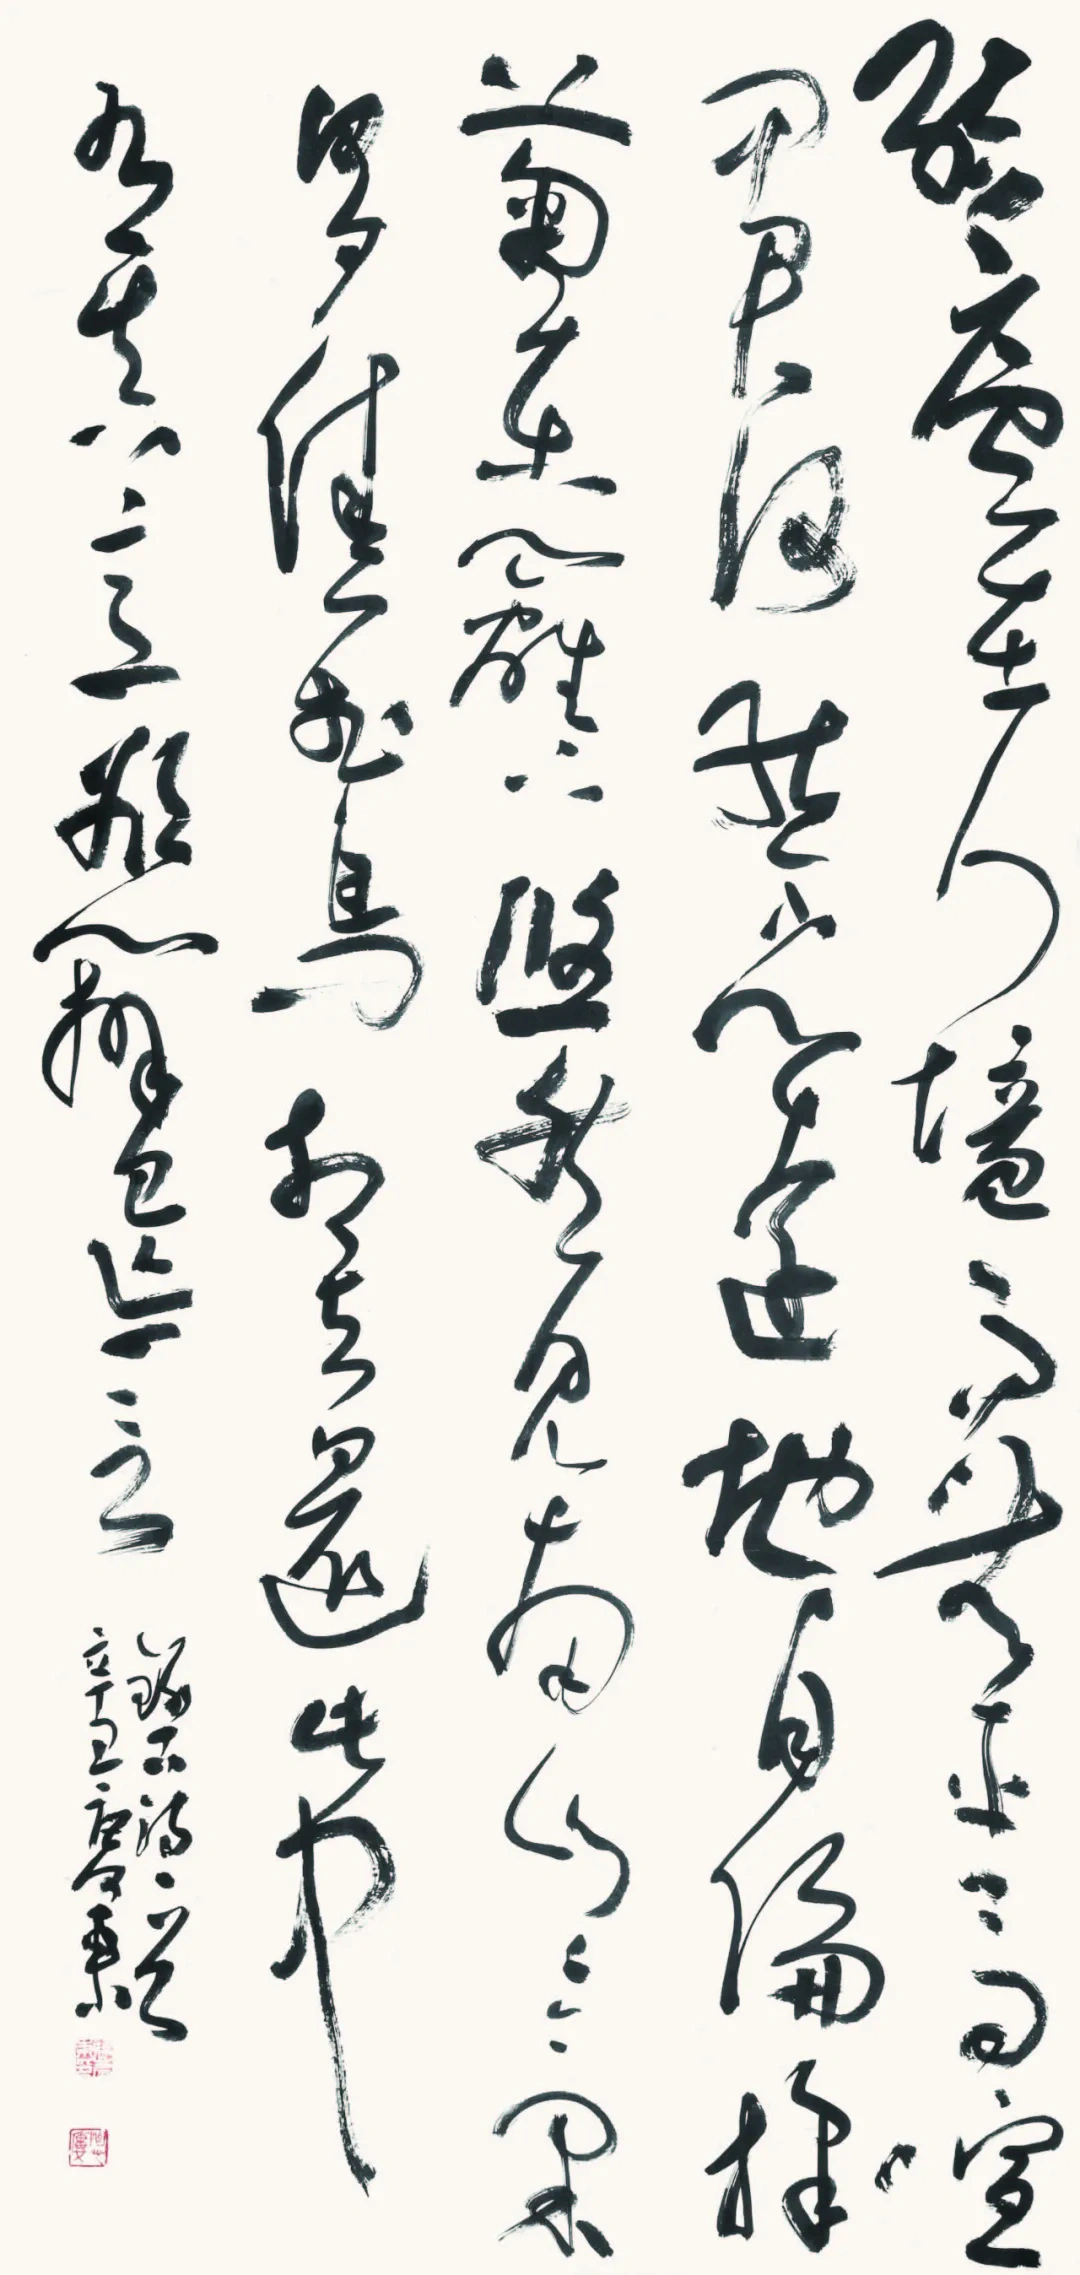 結廬在人境而無車馬喧
問君何能爾心遠地自偏採
菊東籬下悠然見南山々氣
日夕佳飛鳥相與還此中
有真意欲辨已忘言
錄詩一首
辛丑